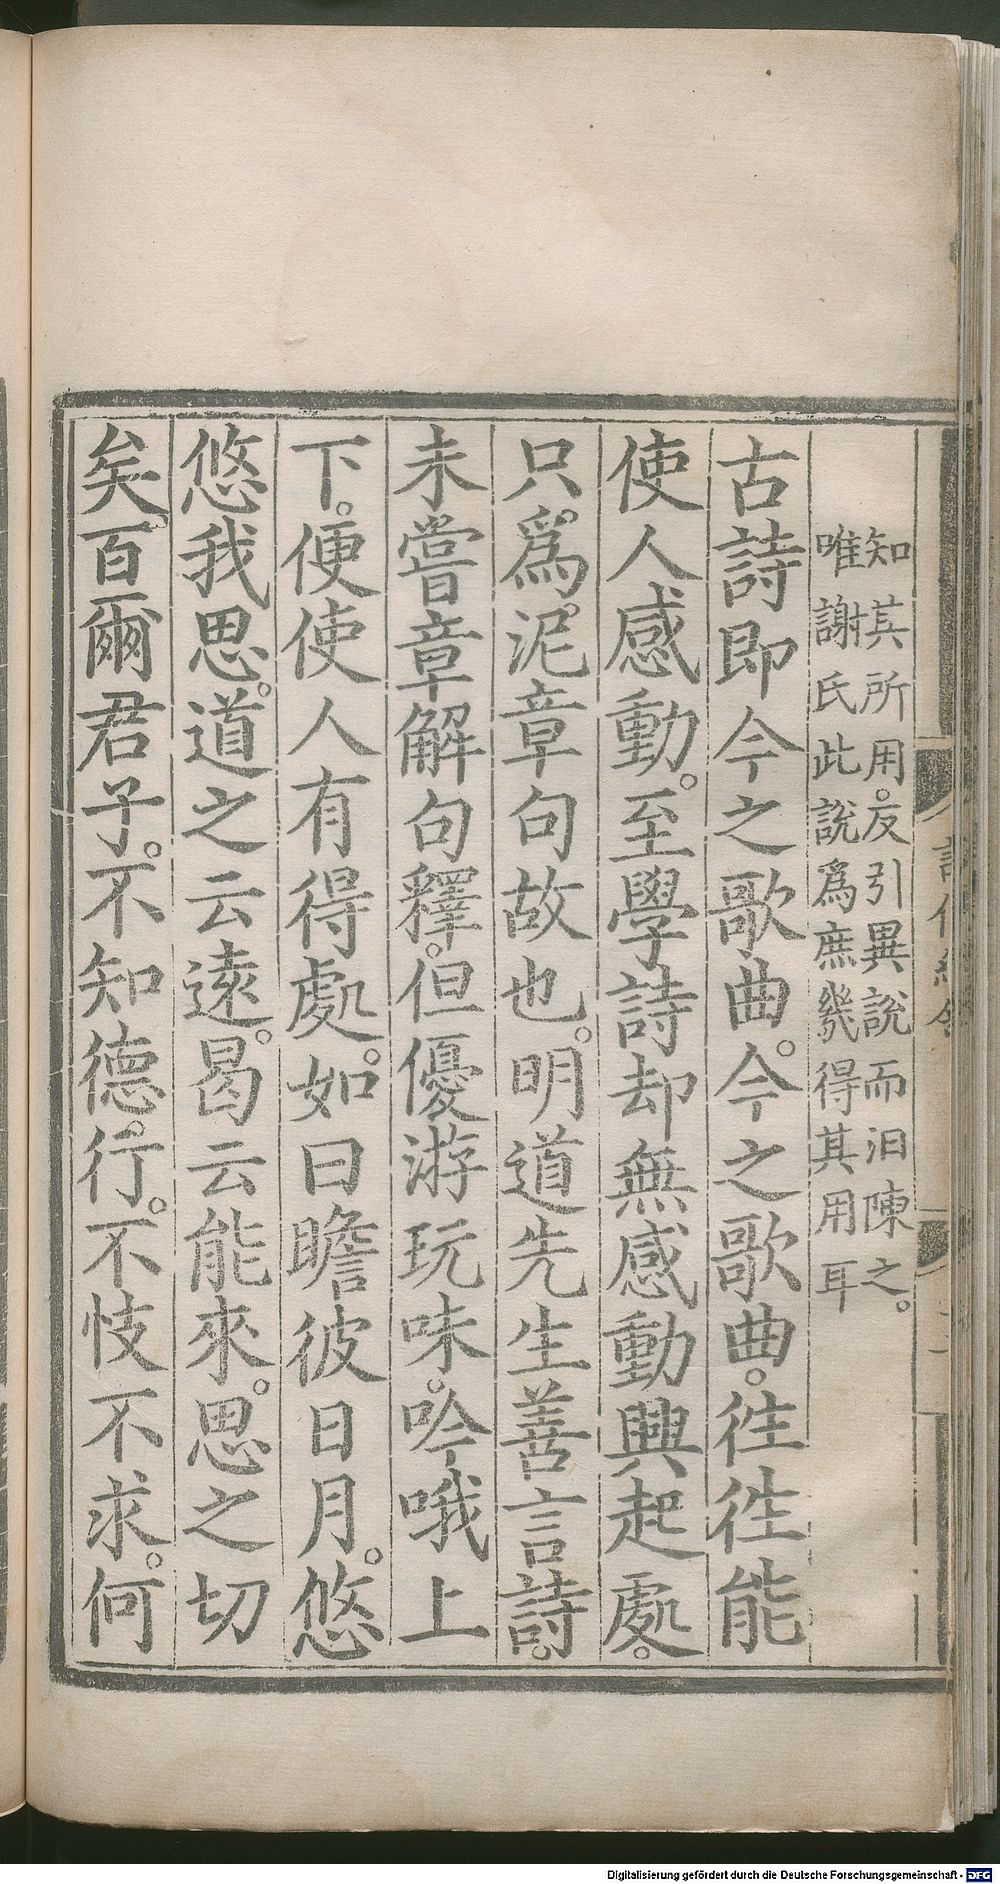 知其所用。反引異說而汩陳之。
唯謝氏此說爲庶幾得其用耳
古詩即今之歌曲。今之歌曲。徃徃能
使人感動。至學詩却無感動興起處。
只爲。泥章句故也。明道先生善言詩。
未嘗章解句釋。但優游玩味。吟哦上
下。便使人有得處。如曰瞻彼日月。悠
悠我思。道之云遠。曷云能來。思之切
矣。百爾君子。不知德行。不忮不求。何
Digitalisierung gefördert durch die Deutsche Forschungsgemeinschaft - DFG